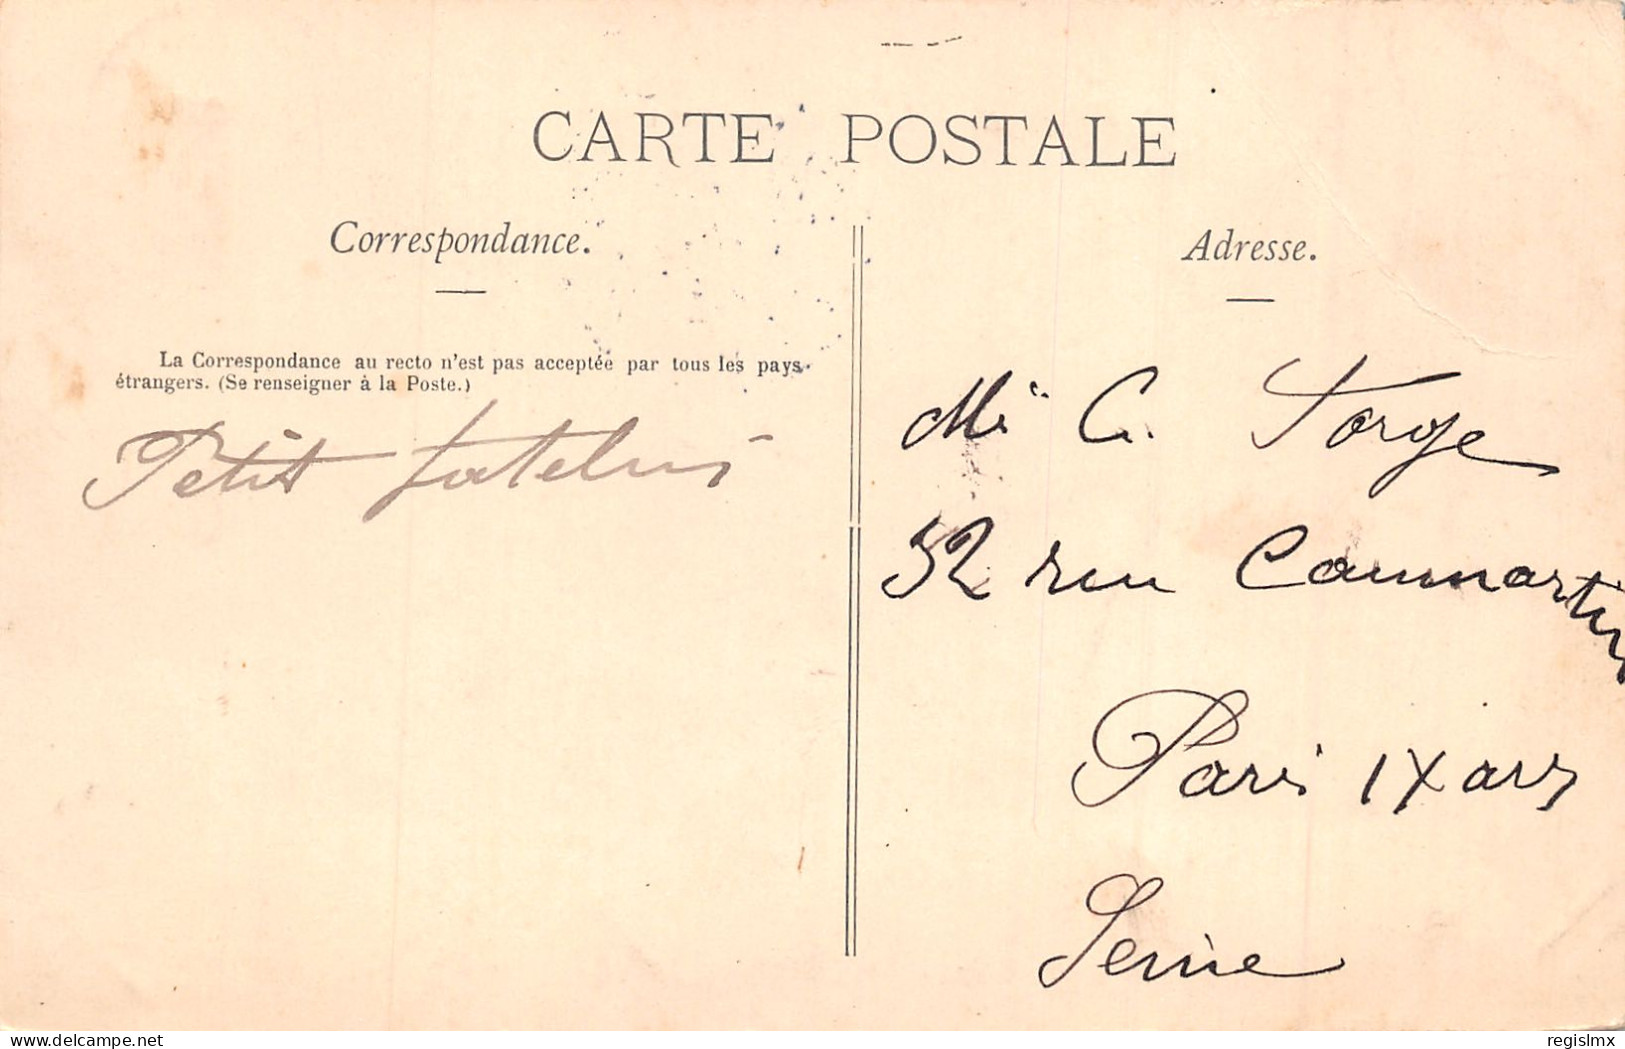 CARTE POSTALE
Correspondance.
La Correspondance au recto n'est pas acceptée par tous les pays
étrangers. (Se renseigner à la Poste.)
Petit
Adresse.
C.
52 rue Caumartin
Paris IX arr
Seine
www.delcampe.net
regislmx